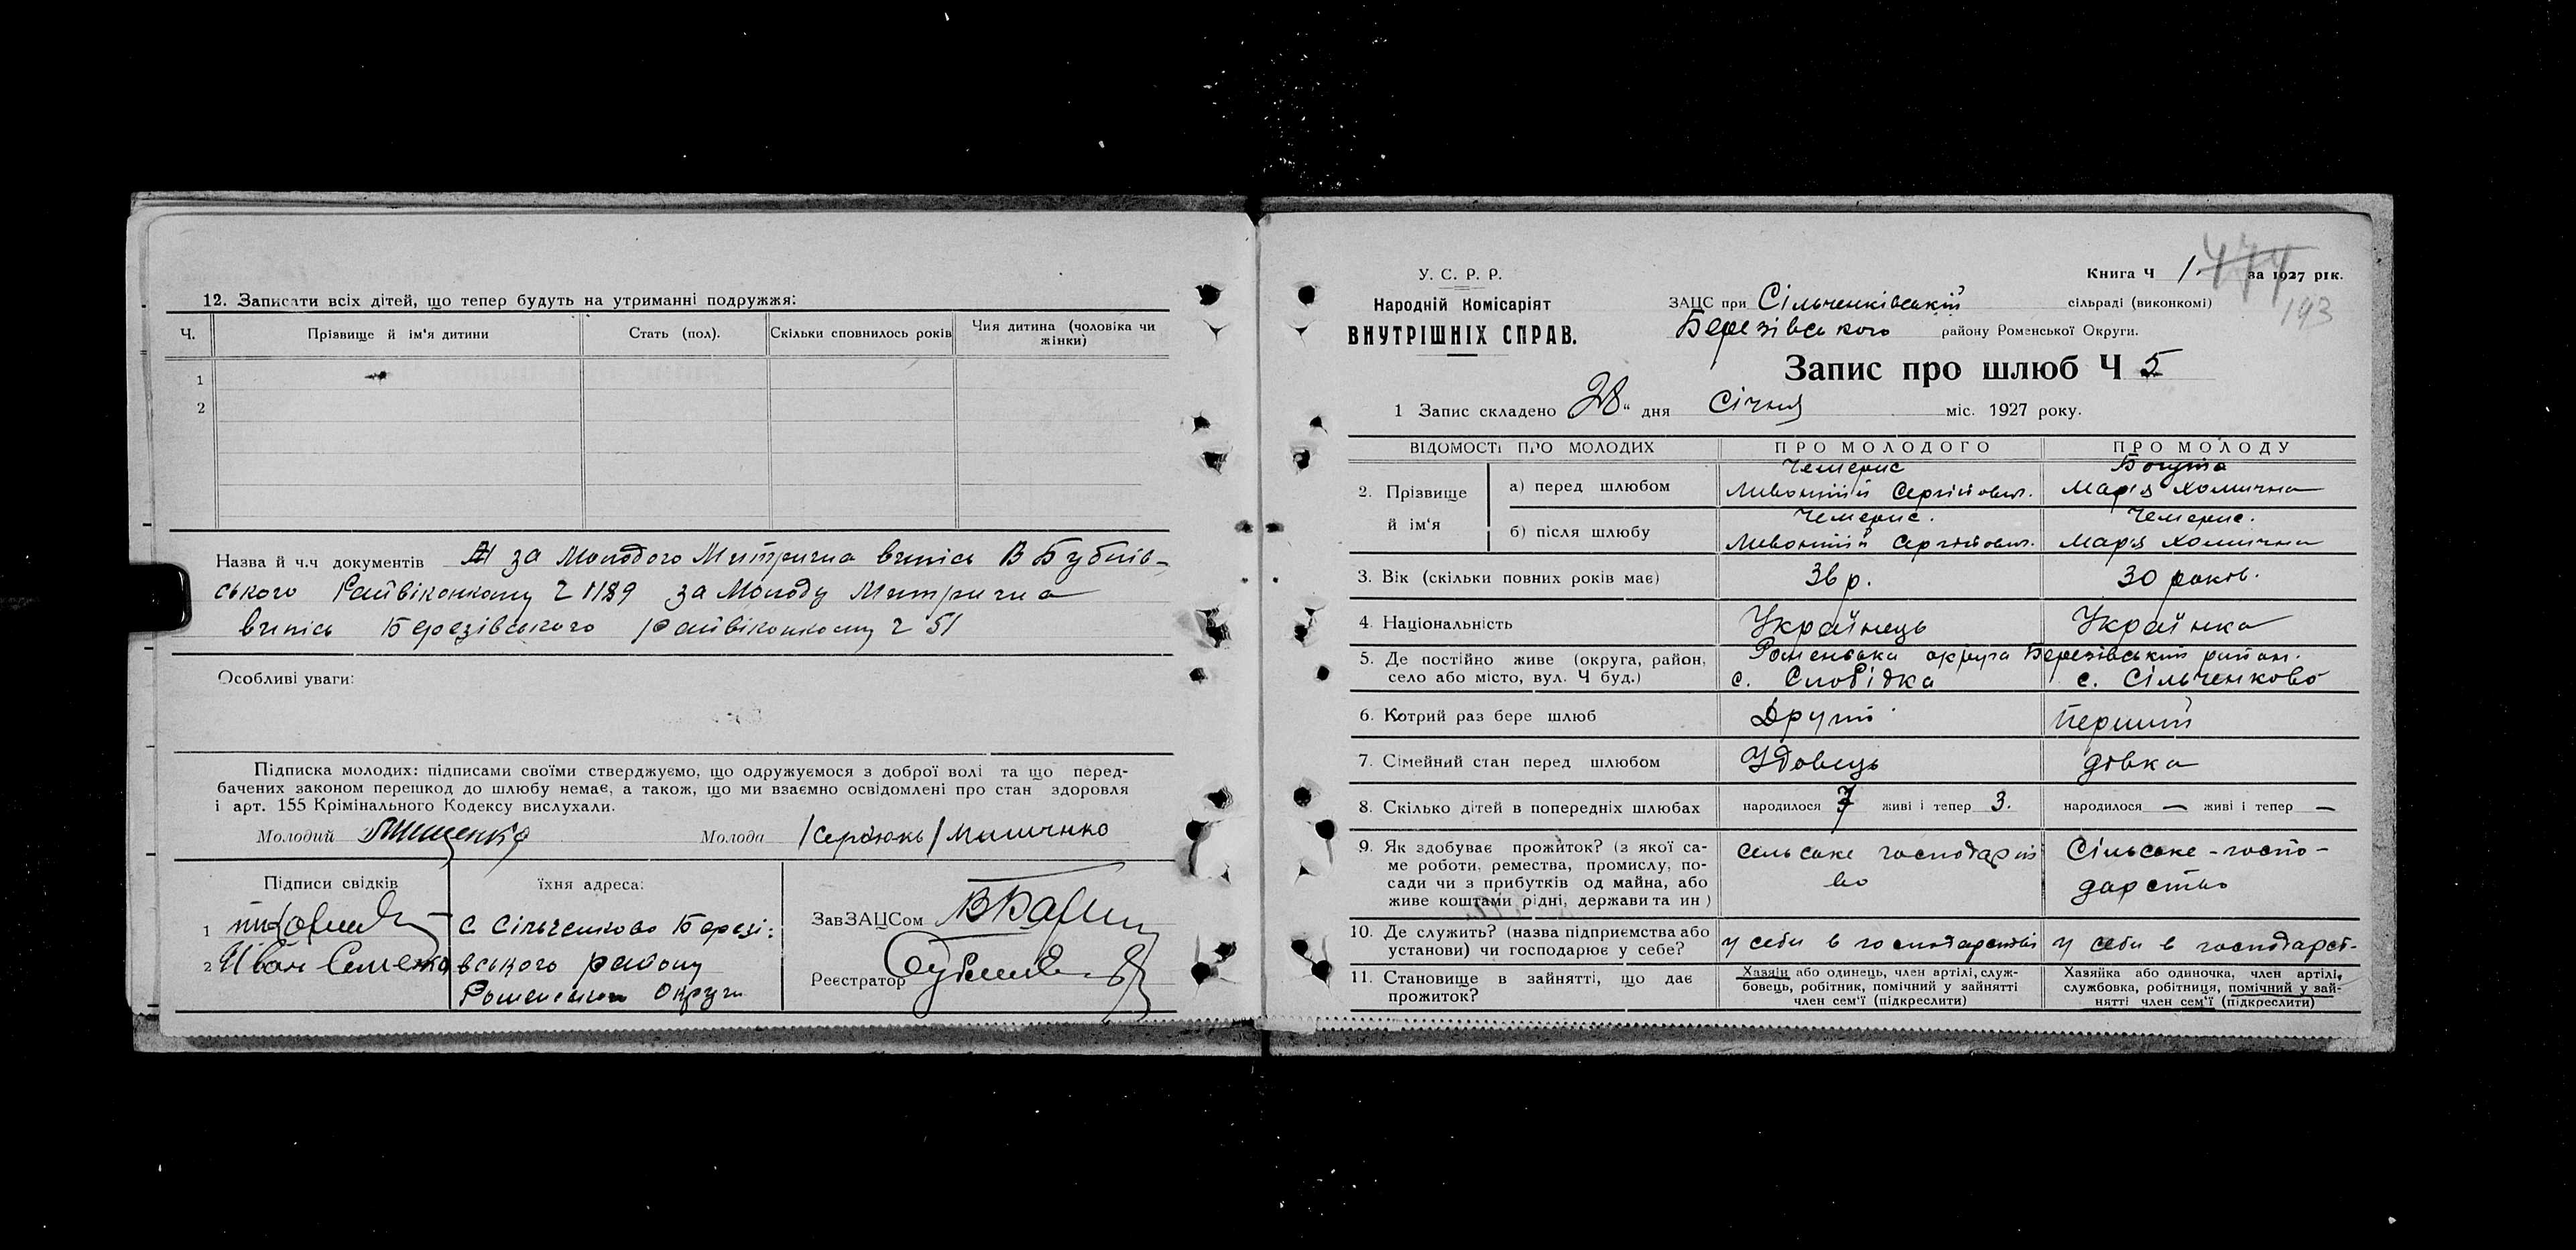 12. Записати всіх дітей, що тепер будуть на утриманні подружжя:
Ч. Прізвище й ім'я дитини Стать (пол). Скільки сповнилось років Чия дитина (чоловіка чи жінки)
1
2
Назва й ч.ч документів за Молодого Митрична впись В Бубнів-
ського Райвіконкому Ч 1189 за Молоду Митрична
впись Березівського райвіконкому Ч 51
Особливі уваги:
Підписка молодих: підписами своїми стверджуємо, що одружуємося з доброї волі та що перед-
бачених законом перешкод до шлюбу немає, а також, що ми взаємно освідомлені про стан здоровля
і арт. 155 Крімінального Кодексу вислухали.
Молодий Молода
Підписи свідків їхня адреса:
1 с Сільченково Березі:
2 Иван вського району
Роменської Округи
ЗавЗАЦСом
Реєстратор
У. С. Р. Р.
Народній Комісаріят
ВНУТРІШНІХ СПРАВ.
Книга Ч 1 за 1927 рік.
474
193
ЗАЦС при Сільченківській сільраді (виконкомі)
Березівського району Роменської Округи.
Запис про шлюб Ч 5
1 Запис складено 28 " дня Січня міс. 1927 року.
ВІДОМОСТІ ПРО МОЛОДИХ ПРО МОЛОДОГО ПРО МОЛОДУ
2. Прізвище й ім'я
а) перед шлюбом Чемерис Сергійович. Богута Марія Хомична
б) після шлюбу Чемерис. Сергійович. Чемерис. Марія Хомична
3. Вік (скільки повних років має) 36 р. 30 років.
4. Національність Українець Українка
5. Де постійно живе (округа, район, Роменська округа Березівський район.
село або місто, вул. Ч буд.) с. Слобідка с. Сільченково
6. Котрий раз бере шлюб Другий Перший
7. Сімейний стан перед шлюбом Удовець дівка
8. Скілько дітей в попередніх шлюбах народилося 7 живі і тепер 3. народилося — живі і тепер —
9. Як здобуває прожиток? (з якої са- сельське господарст Сільське-госпо-
ме роботи, ремества, промислу, по- во дарство
сади чи з прибутків од майна, або
живе коштами рідні, держави та ин)
10. Де служить? (назва підприємства або у себи в господарстві у себи в господарст-
установи) чи господарює у себе?
11. Становище в зайнятті, що дає Хазяїн або одинець, член артілі, служ- Хазяйка або одиночка, член артілі,
прожиток? бовець, робітник, помічний у зайнятті службовка, робітниця, помічний у зай-
член сем'ї (підкреслити) нятті член сем'ї (підкреслити)